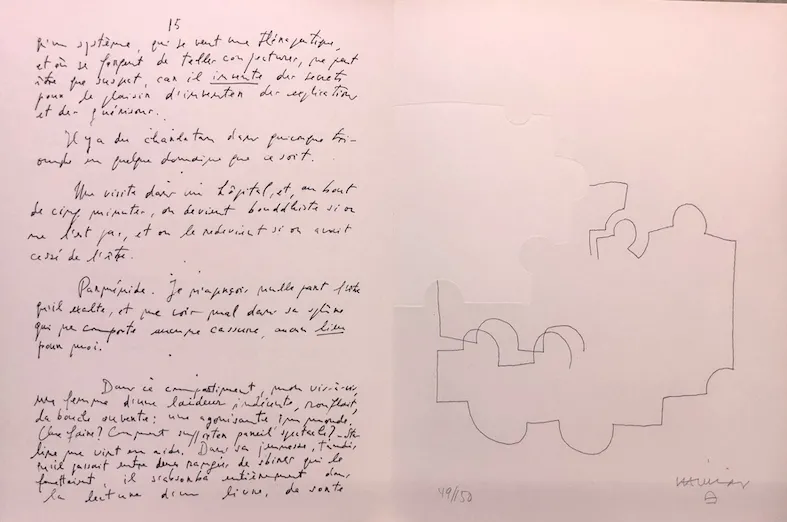 15
qu'un système, qui se veut une thérapeutique,
et où se forgent de telles conjectures, ne peut
être que suspect, car il invente des secrets
pour le plaisir d'inventer des explications
et des guérisons.
Il y a du charlatan dans quiconque tri-
omphe en quelque domaine que ce soit.
Une visite dans un hôpital, et, au bout
de cinq minutes, on devient bouddhiste si on
ne l'est pas, et on le redevient si on avait
cessé de l'être.
Parménide. Je n'aperçois nulle part l'être
qu'il exalte, et me vois mal dans sa sphère
qui ne comporte aucune cassure, aucun lieu
pour moi.
Dans ce compartiment, mon vis-à-vis,
une femme d'une laideur indécente, ronflait,
la bouche ouverte: une agonisante immonde.
Que faire? Comment supporter pareil spectacle? - Sta-
line me vint en aide. Dans sa jeunesse, tandis
qu'il passait entre deux rangées de sbires qui le
fouettaient, il s'absorba entièrement dans
la lecture d'un livre, de sorte
49/150